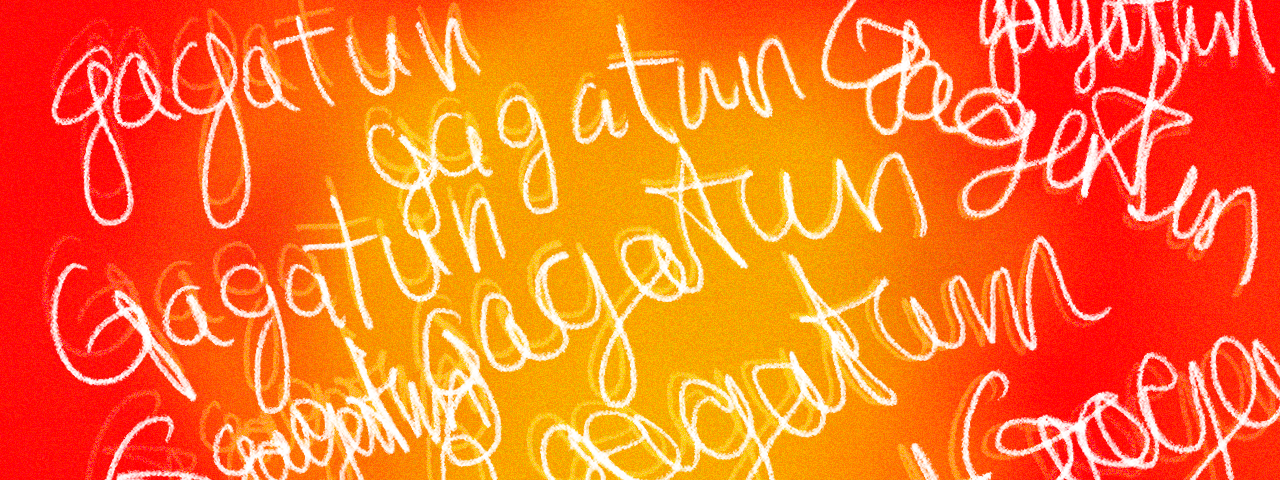 gagatun
gagatun
Gagatun
gagatun
Gagatun
gagatun
gagatun
gagatun